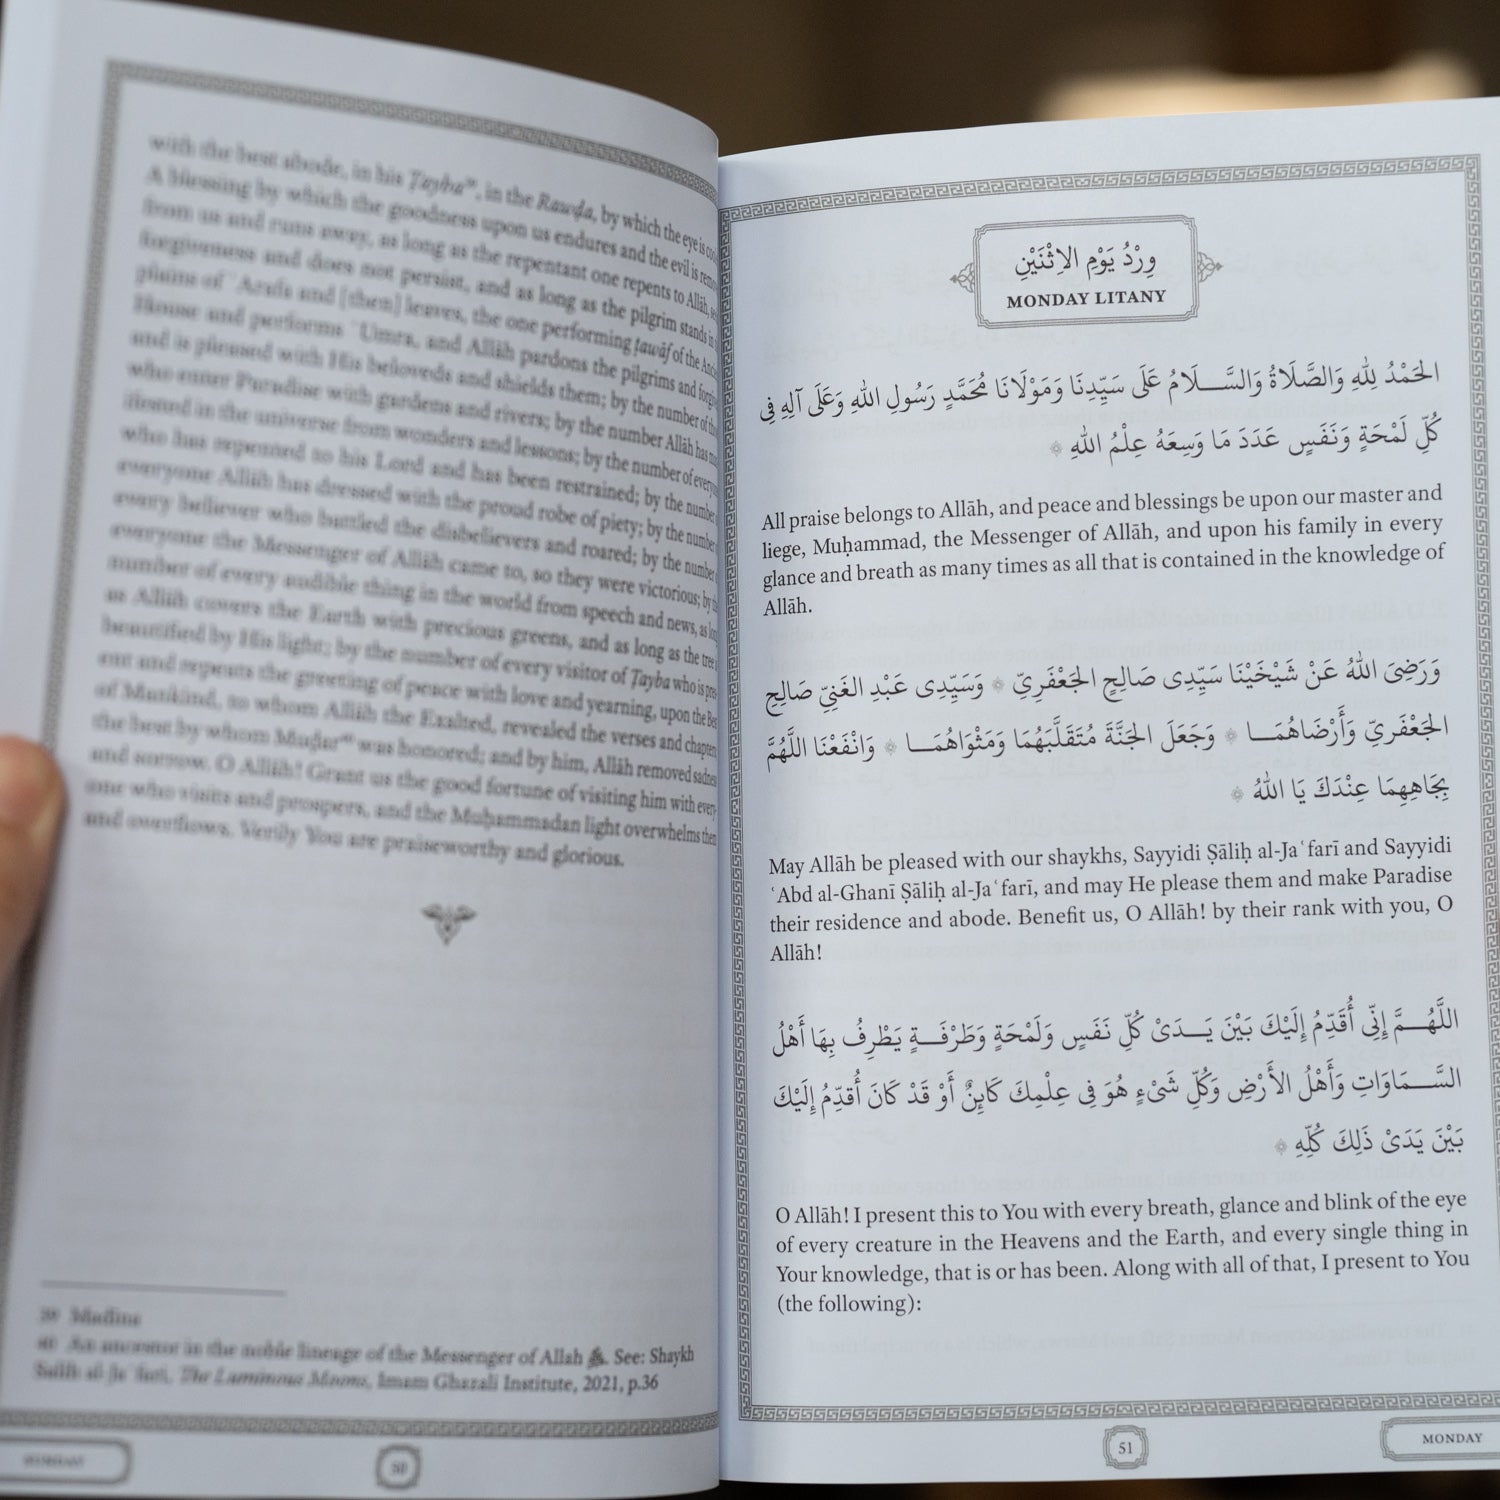 with the best abode, in his Ṭayba³⁹, in the Rawḍa, by which the eye is
A blessing by which the goodness upon us endures and the evil is
from us and runs away, as long as the repentant one repents to Allāh,
forgiveness and does not persist, and as long as the pilgrim stands in
plains of ʿArafa and [then] leaves, the one performing ṭawāf of the
House and performs ʿUmra, and Allāh pardons the pilgrims and
and is pleased with His beloveds and shields them; by the number of
who enter Paradise with gardens and rivers; by the number Allāh has
in the universe from wonders and lessons; by the number of
who has repented to his Lord and has been restrained; by the number
everyone Allāh has dressed with the proud robe of piety; by the number
every believer who battled the disbelievers and roared; by the number
everyone the Messenger of Allāh came to, so they were victorious; by
number of every audible thing in the world from speech and news, as
as Allāh covers the Earth with precious greens, and as long as the
beautified by His light; by the number of every visitor of Ṭayba who is
ent and repeats the greeting of peace with love and yearning, upon the Best
of Mankind, to whom Allāh the Exalted, revealed the verses and chapters
the best by whom Muḍar⁴⁰ was honored; and by him, Allāh removed sadness
and sorrow. O Allāh! Grant us the good fortune of visiting him with every-
one who visits and prospers, and the Muḥammadan light overwhelms them
and overflows. Verily You are praiseworthy and glorious.
39 Madina
40 An ancestor in the noble lineage of the Messenger of Allah ﷺ. See: Shaykh
Salih al-Jaʿfari, The Luminous Moons, Imam Ghazali Institute, 2021, p.36
50
وِرْدُ يَوْمِ الاِثْنَيْنِ
MONDAY LITANY
الحَمْدُ لِلَّهِ وَالصَّلَاةُ وَالسَّلَامُ عَلَى سَيِّدِنَا وَمَوْلَانَا مُحَمَّدٍ رَسُولِ اللَّهِ وَعَلَى آلِهِ فِى
كُلِّ لَمْحَةٍ وَنَفَسٍ عَدَدَ مَا وَسِعَهُ عِلْمُ اللَّهِ ۞
All praise belongs to Allāh, and peace and blessings be upon our master and
liege, Muḥammad, the Messenger of Allāh, and upon his family in every
glance and breath as many times as all that is contained in the knowledge of
Allāh.
وَرَضِىَ اللَّهُ عَنْ شَيْخَيْنَا سَيِّدِى صَالِحٍ الجَعْفَرِيِّ ۞ وَسَيِّدِى عَبْدِ الغَنِيِّ صَالِحٍ
الجَعْفَرِيِّ وَأَرْضَاهُمَا ۞ وَجَعَلَ الجَنَّةَ مُتَقَلَّبَهُمَا وَمَثْوَاهُمَا ۞ وَانْفَعْنَا اللَّهُمَّ
بِجَاهِهِمَا عِنْدَكَ يَا اللَّهُ ۞
May Allāh be pleased with our shaykhs, Sayyidi Ṣāliḥ al-Jaʿfarī and Sayyidi
ʿAbd al-Ghanī Ṣāliḥ al-Jaʿfarī, and may He please them and make Paradise
their residence and abode. Benefit us, O Allāh! by their rank with you, O
Allāh!
اللَّهُمَّ إِنِّى أُقَدِّمُ إِلَيْكَ بَيْنَ يَدَىْ كُلِّ نَفَسٍ وَلَمْحَةٍ وَطَرْفَةٍ يَطْرِفُ بِهَا أَهْلُ
السَّمَاوَاتِ وَأَهْلُ الأَرْضِ وَكُلِّ شَىْءٍ هُوَ فِى عِلْمِكَ كَائِنٌ أَوْ قَدْ كَانَ أُقَدِّمُ إِلَيْكَ
بَيْنَ يَدَىْ ذَلِكَ كُلِّهِ ۞
O Allāh! I present this to You with every breath, glance and blink of the eye
of every creature in the Heavens and the Earth, and every single thing in
Your knowledge, that is or has been. Along with all of that, I present to You
(the following):
51
MONDAY